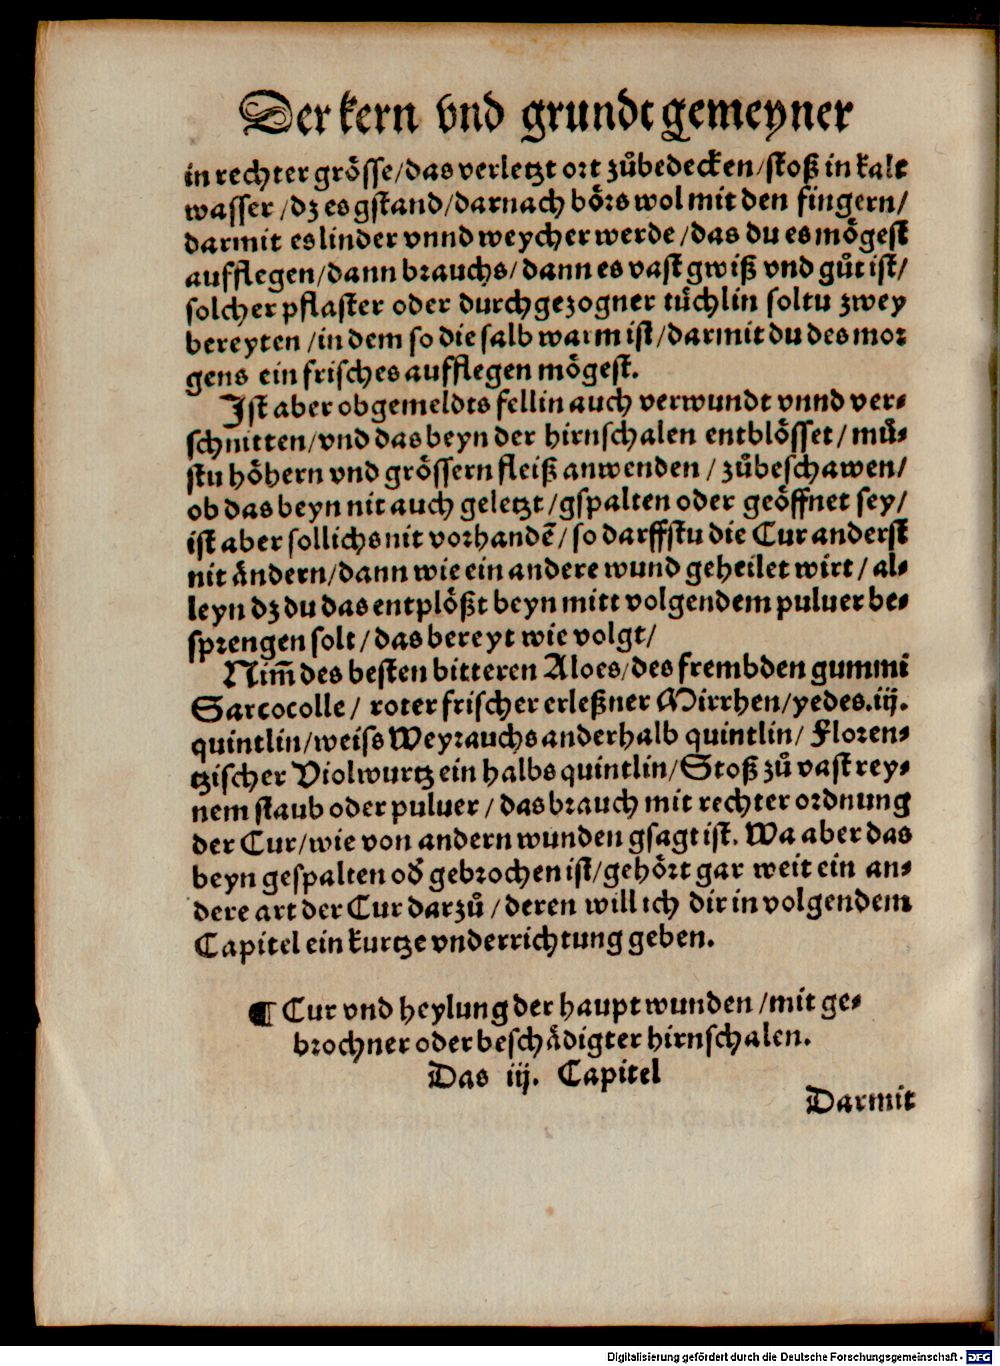 Der kern vnd grundt gemeyner
in rechter grösse/das verletzt ort zůbedecken/stoß in kalt
wasser/dz es gstand/darnach börs wol mit den fingern/
darmit es linder vnnd weycher werde/das du es mögest
aufflegen/dann brauchs/dann es vast gwiß vnd gůt ist/
solcher pflaster oder durchgezogner tüchlin soltu zwey
bereyten/in dem so die salb warm ist/darmit du des mor
gens ein frisches aufflegen mögest.
Ist aber obgemeldts fellin auch verwundt vnnd ver⸗
schnitten/vnd das beyn der hirnschalen entblösset/mů⸗
stu höhern vnd grössern fleiß anwenden/zůbeschawen/
ob das beyn nit auch geletzt/gspalten oder geöffnet sey/
ist aber sollichs nit vorhandẽ/so darffstu die Cur anderst
nit ändern/dann wie ein andere wund geheilet wirt/al⸗
leyn dz du das entplößt beyn mitt volgendem puluer be⸗
sprengen solt/das bereyt wie volgt/
Nim̃ des besten bitteren Aloes/des frembden gummi
Sarcocolle/roter frischer erleßner Mirrhen/yedes.iij.
quintlin/weiss Weyrauchs anderhalb quintlin/Floren⸗
tzischer Violwurtz ein halbs quintlin/Stoß zů vast rey⸗
nem staub oder puluer/das brauch mit rechter ordnung
der Cur/wie von andern wunden gsagt ist. Wa aber das
beyn gespalten od̓ gebrochen ist/gehört gar weit ein an⸗
dere art der Cur darzů/deren will ich dir in volgendem
Capitel ein kurtze vnderrichtung geben.
¶ Cur vnd heylung der haupt wunden/mit ge⸗
brochner oder beschädigter hirnschalen.
Das iij. Capitel
Darmit
Digitalisierung gefördert durch die Deutsche Forschungsgemeinschaft - DFG